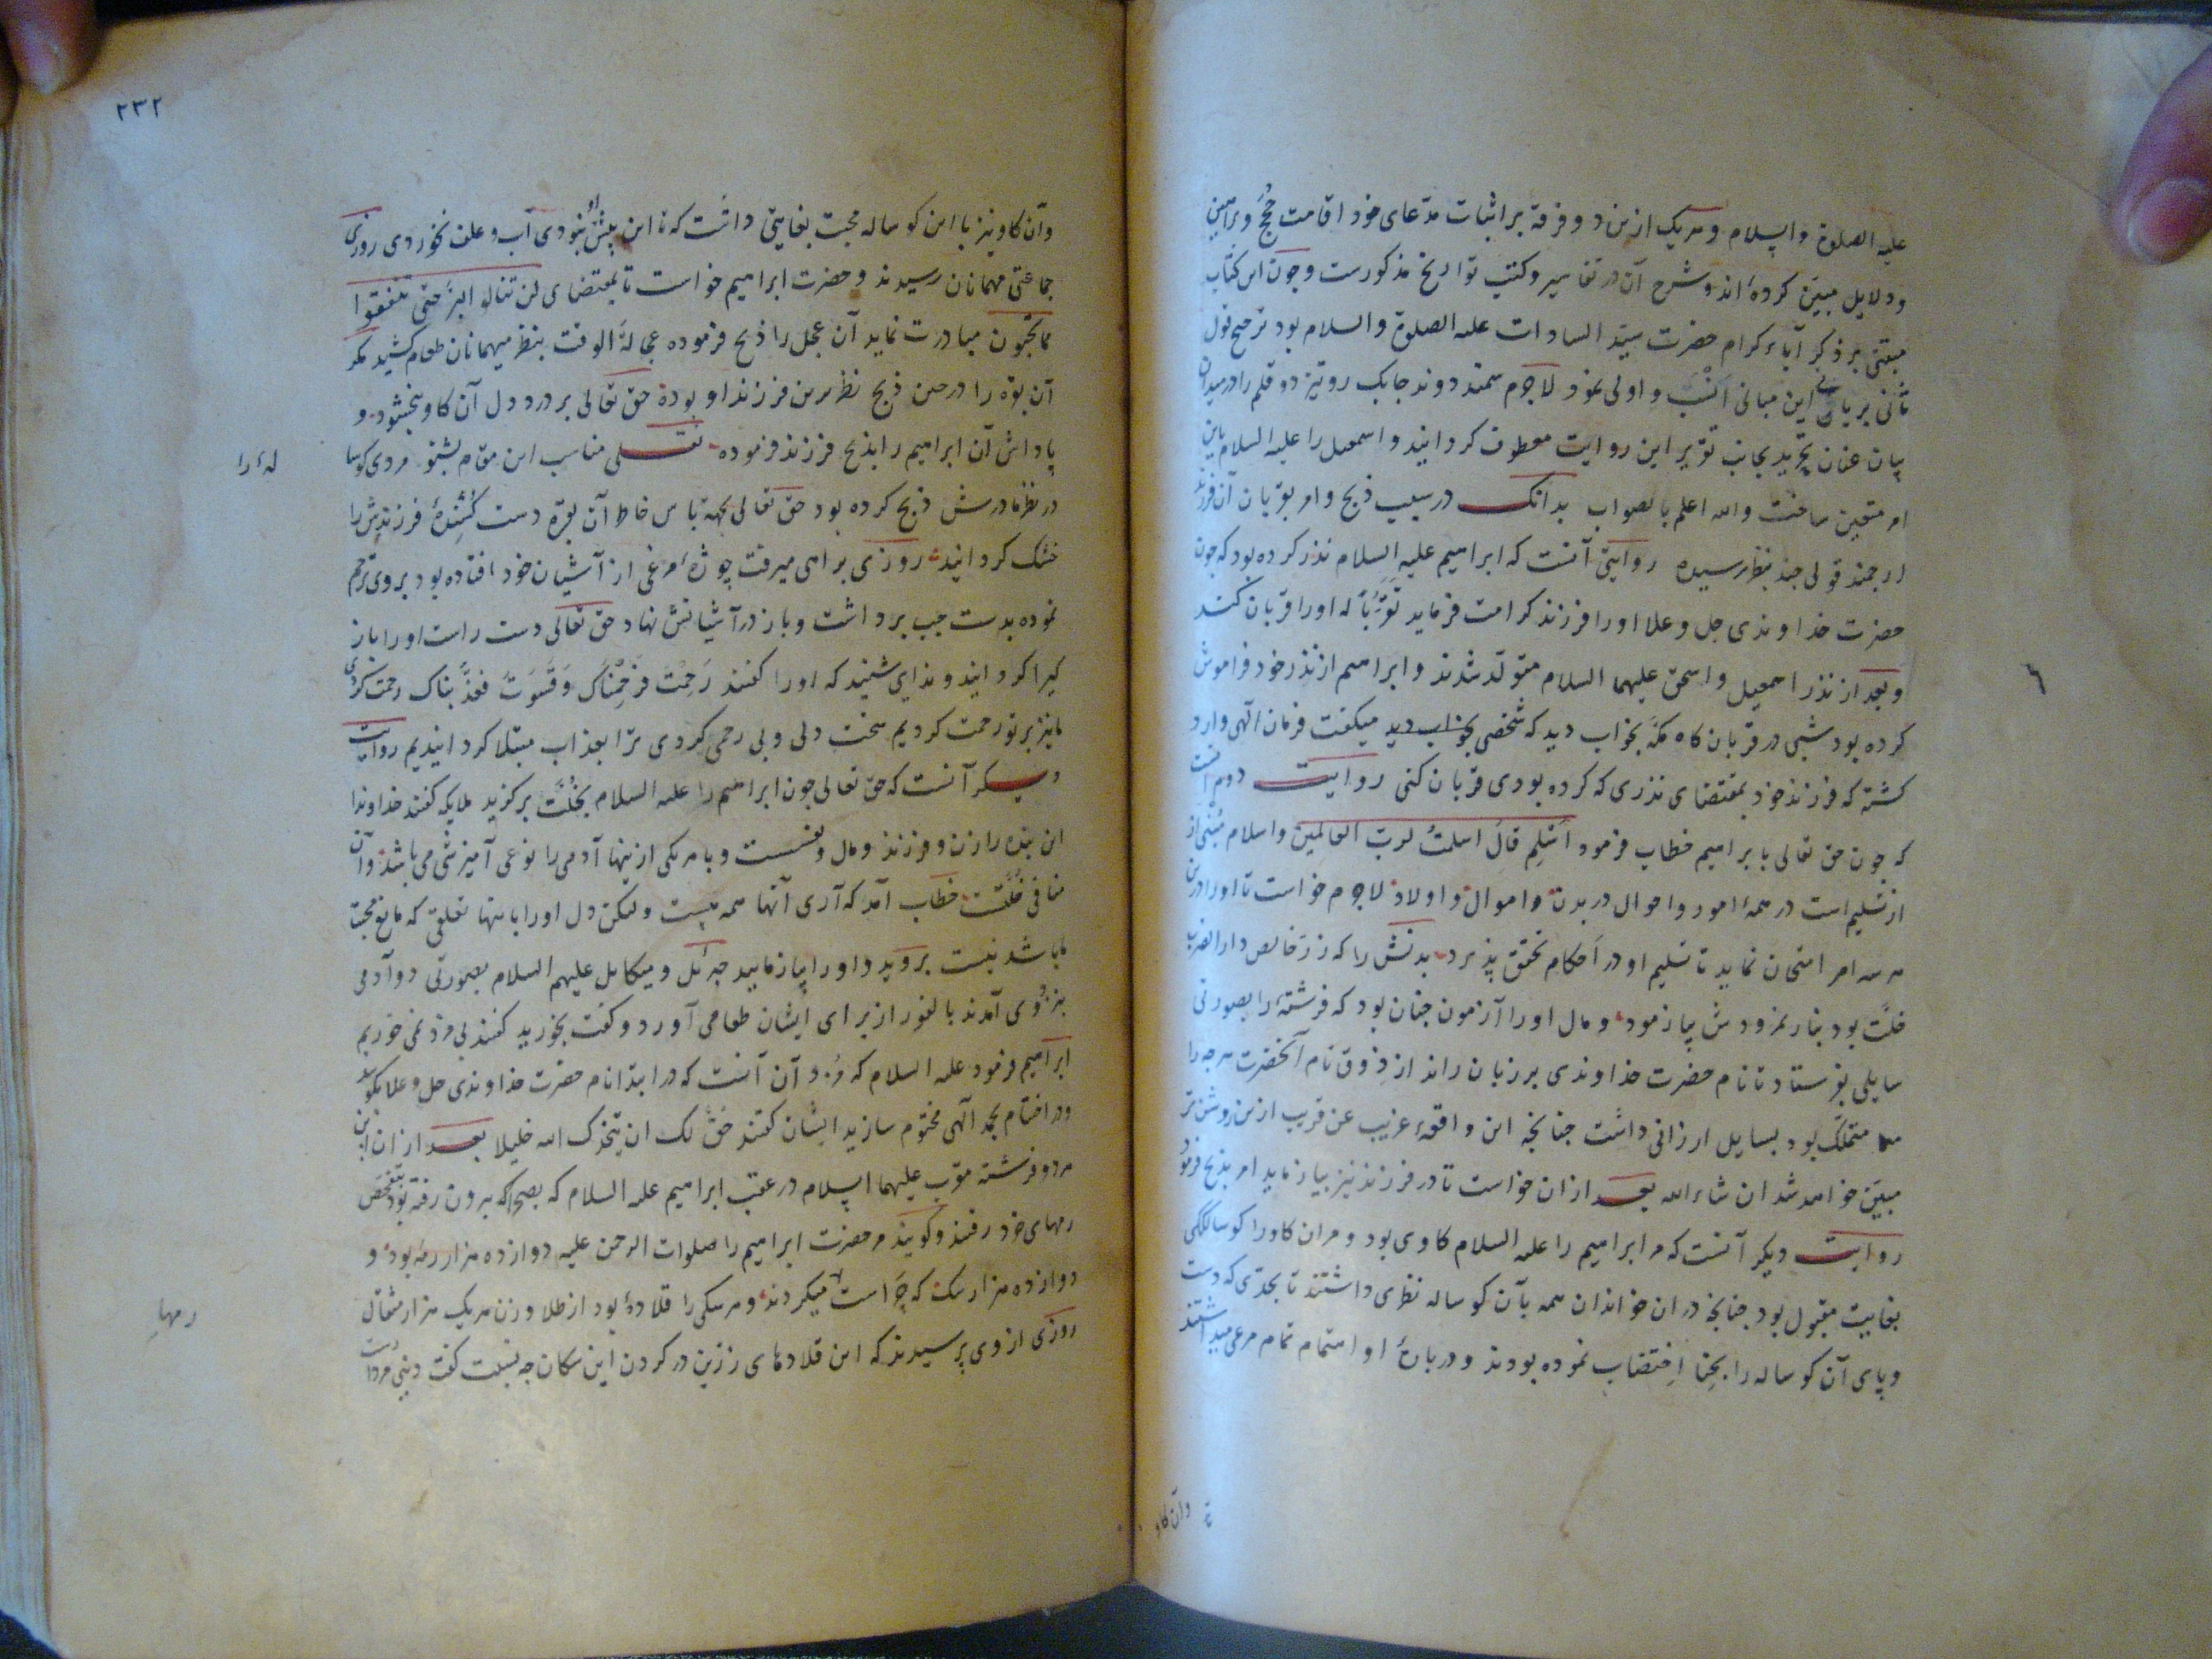 علیه الصلوة والسلام وهریک ازین دو فرقه بر اثبات مدعای خود اقامت حجج وبراهین
ودلایل مبین کرده‌اند وشرح آن در تفاسیر وکتب تواریخ مذکورست وچون این کتاب
مبتنی بر ذکر آباء کرام حضرت سید السادات علیه الصلوة والسلام بود ترجیح قول
ثانی بر این مبانی انسب و اولی نمود لاجرم سمند دوند چابک رو تیز دو قلم را در میدان
بیان عنان بجانب این روایت معطوف کردانید و اسمعیل را علیه السلام باین
امر متعین ساخت والله اعلم بالصواب بدانک در سبب ذبح وامر بقربان آن فرزند
ارجمند قولی چند بنظر رسیده روایتی آنست که ابراهیم علیه السلام نذر کرده بود که چون
حضرت خداوندی جل وعلا اورا فرزند کرامت فرماید تقربا له اورا قربان کند
وبعد از نذر اسمعیل واسحق علیهما السلام متولد شدند وابراهیم از نذر خود فراموش
کرده بود شبی در قربان کاه مکه بخواب دید که شخصی بخواب دید میکفت فرمان الهی وارد
کشته که فرزند خود بمقتضای نذری که کرده بودی قربان کنی روایت دوم آنست
که چون حق تعالی با براهیم خطاب فرمود اسلم قال اسلمت لرب العالمین واسلام مبنی از
از تسلیم است در همهٔ امور واحوال در بدن واموال واولاد لاجرم خواست تا اورا درین
هر سه امر امتحان نماید تا تسلیم او در احکام تحقق پذیرد بدنش را که زر خالص دار الضرب
خلت بود بنار نمرودش بیازمود ومال اورا آزمون چنان بود که فرشتهٔ را بصورتی
سایلی بفرستاد تا نام حضرت خداوندی بر زبان راند از ذوق نام آنحضرت هرچه را
متملک بود بسایل ارزانی داشت چنانچه این واقعهٔ غریب عن قریب ازین روشن تر
مبین خواهد شد ان شاء الله بعد ازان خواست تا در فرزند نیز بیازماید امر بذبح فرمود
روایت دیکر آنست که مر ابراهیم را علیه السلام کاوی بود ومر ان کاورا کوسالکی
بغایت مقبول بود چنانچه دران خاندان همه بآن کوساله نظری داشتند تا بحدی که دست
وپای آن کوساله را بحنا اختضاب نموده بودند ودربارهٔ او اهتمام تمام مرعی میداشتند
وآن کاو
۲۳۲
وآن کاو نیز با این کوساله محبت بغایتی داشت که تا این پیش او نبودی آب وعلف نخوردی روزی
جماعتی مهمانان رسیدند وحضرت ابراهیم خواست تا بمقتضای لن تنالوا البر حتی تنفقوا
مما تحبون مبادرت نماید آن عجل را ذبح فرموده عجالة الوقت بنظر میهمانان طعام کشید مکر
آن بقره را در حین ذبح نظر برین فرزند او بوده حق تعالی بر درد دل آن کاو ببخشود و
پاداش آن ابراهیم را بذبح فرزند فرموده نقلی مناسب این مقام بشنو مردی کوسا
له‌ٔ را
در نظر مادرش ذبح کرده بود حق تعالی بجهة پاس خاطر آن بقره دست کشندهٔ فرزندش را
خشک کردانید روزی براهی میرفت چوژهٔ مرغی از آشیان خود افتاده بود بروی ترحم
نموده بدست چپ برداشت وباز در آشیانش نهاد حق تعالی دست راست اورا باز
کیرا کردانید وندایی شنید که اورا کفتند رحمت فرحمناک وقسوت فعذبناک رحمت کردی
ما نیز بر تو رحمت کردیم سخت دلی وبی رحمی کردی ترا بعذاب مبتلا کردانیدیم روایت
دیکر آنست که حق تعالی چون ابراهیم را علیه السلام بخلت برکزید ملایکه کفتند خداوندا
این بنده را زن وفرزند ومال ونفسست وبا هر یکی ازینها آدمی را نوعی آمیزشی می باشد وآن
منافی خلت خطاب آمد که آری آنها همه هست ولیکن دل اورا با اینها تعلقی که مانع محبت
ما باشد نیست بروید واورا بیازمایید جبرئیل ومیکائیل علیهم السلام بصورتی دو آدمی
بنزد وی آمدند بالفور از برای ایشان طعامی آورد وکفت بخورید کفتند بی مزد نمی خوریم
ابراهیم فرمود علیه السلام که مزد آن آنست که در ابتدا نام حضرت خداوندی جل وعلا بکویید
ودر اختتام بحمد الهی مختوم سازید ایشان کفتند حق لک ان یتخذک الله خلیلا بعد ازان این
هر دو فرشته مقرب علیهما السلام در عقب ابراهیم علیه السلام که بصحرا که بیرون رفته بود بتفحص
رمهای خود رفتند وکویند مر حضرت ابراهیم را صلوات الرحمن علیه دوازده هزار رمه بود و
دوازده هزار سک که حراست میکردند وهر سکی را قلادهٔ بود از طلا وزن هریک هزار مثقال
رمهاء
روزی از وی پرسیدند که این قلادهای زرین در کردن این سکان چه نسبت کفت دینی مردار